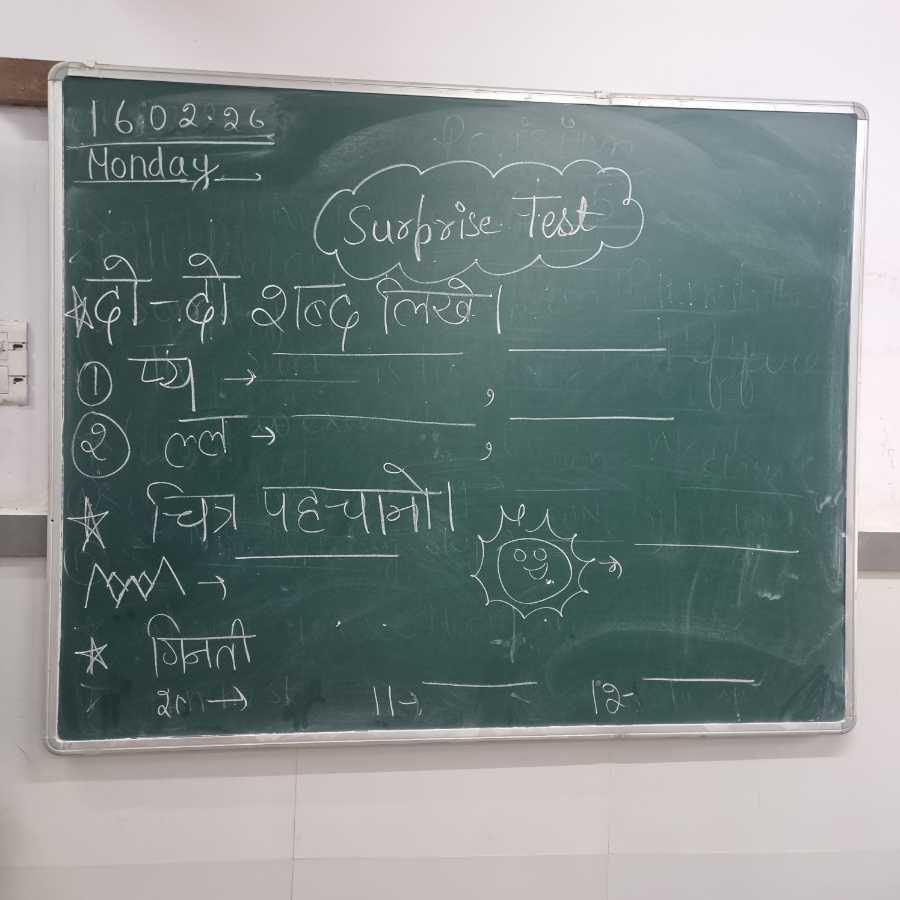 16.02.26
Monday
Surprise Test
★ दो-दो शब्द लिखे।
① प्य → ______ , ______
② ल्ल → ______ , ______
★ चित्र पहचानो।
→ ______ → ______
★ गिनती
→ 11→ ______ 12- ______